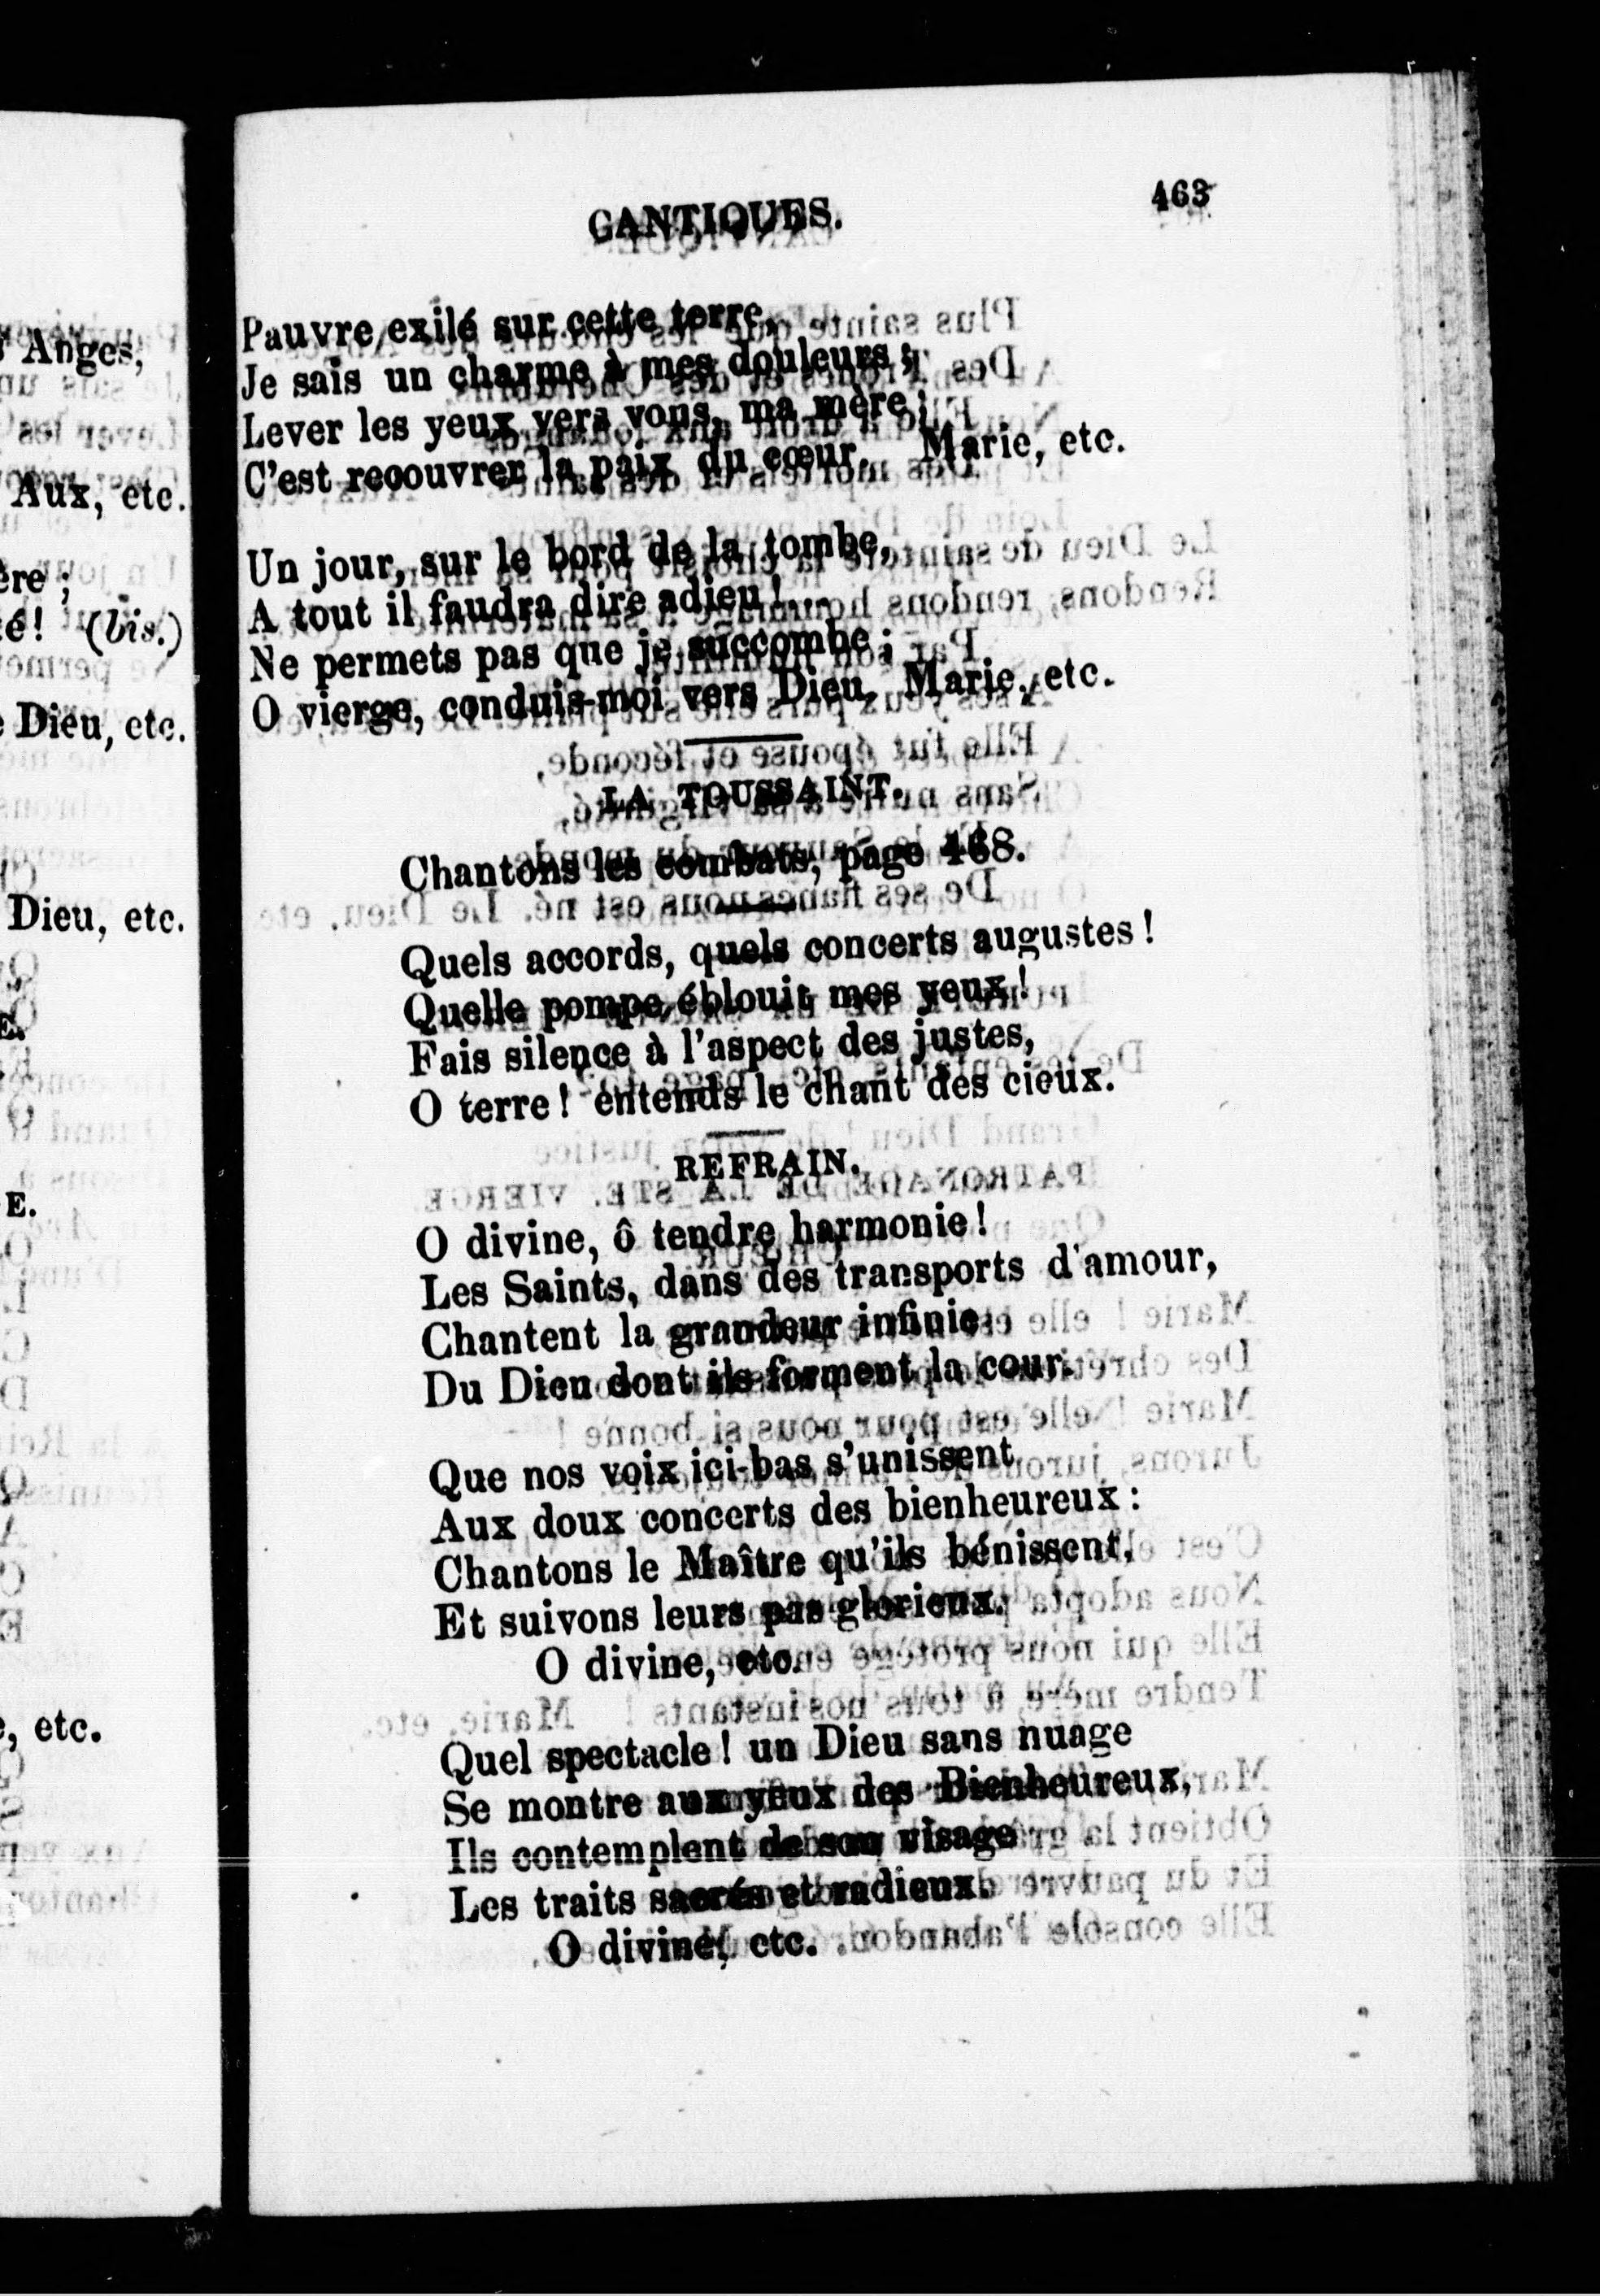 Anges,
Aux, etc.
ère ;
té! (bis.)
Dieu, etc.
Dieu, etc.
E.
E.
, etc.
CANTIQUES. 463
Pauvre exilé sur cette terre,
Je sais un charme à mes douleurs ;
Lever les yeux vers vous, ma mère ;
C'est recouvrer la paix du cœur. Marie, etc.
Un jour, sur le bord de la tombe,
A tout il faudra dire adieu !
Ne permets pas que je succombe ;
O vierge, conduis-moi vers Dieu. Marie, etc.
LA TOUSSAINT.
Chantons les combats, page 468.
Quels accords, quels concerts augustes !
Quelle pompe éblouit mes yeux !
Fais silence à l'aspect des justes,
O terre ! entends le chant des cieux.
REFRAIN.
O divine, ô tendre harmonie !
Les Saints, dans des transports d'amour,
Chantent la grandeur infinie
Du Dieu dont ils forment la cour.
Que nos voix ici-bas s'unissent
Aux doux concerts des bienheureux :
Chantons le Maître qu'ils bénissent,
Et suivons leurs pas glorieux.
O divine, etc.
Quel spectacle ! un Dieu sans nuage
Se montre aux yeux des Bienheureux,
Ils contemplent de son visage
Les traits sacrés et radieux.
O divine, etc.